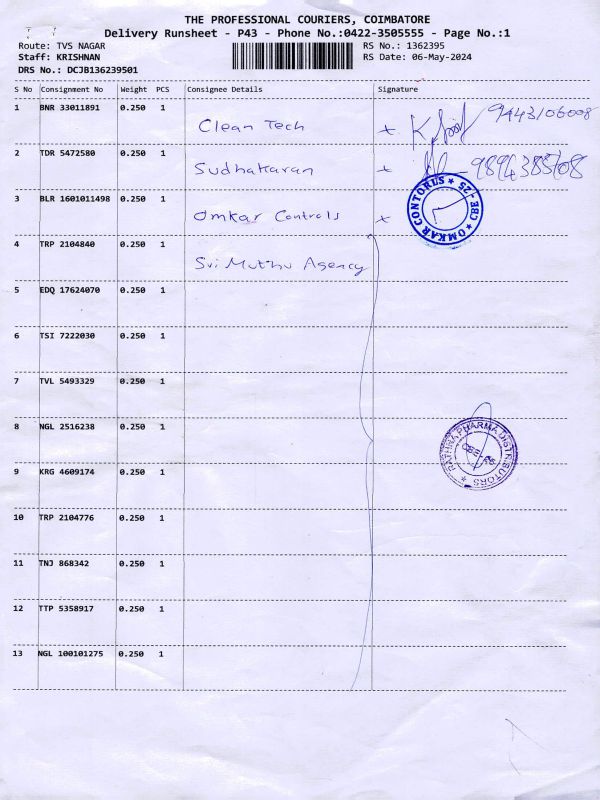 THE PROFESSIONAL COURIERS, COIMBATORE
Delivery Runsheet - P43 - Phone No.:0422-3505555 - Page No.:1
Route: TVS NAGAR RS No.: 1362395
Staff: KRISHNAN RS Date: 06-May-2024
DRS No.: DCJB136239501
S No Consignment No Weight PCS Consignee Details Signature
1 BNR 33011891 0.250 1 Clean Tech 9443106008
2 TDR 5472580 0.250 1 Sudhakaran
3 BLR 1601011498 0.250 1 Omkar Controls
OMKAR CONTORLS ★ CBE
4 TRP 2104840 0.250 1 Sri Muthu Agency
5 EDQ 17624070 0.250 1
6 TSI 7222030 0.250 1
7 TVL 5493329 0.250 1
8 NGL 2516238 0.250 1
PHARMA DISTRIBUTORS ★
9 KRG 4609174 0.250 1
10 TRP 2104776 0.250 1
11 TNJ 868342 0.250 1
12 TTP 5358917 0.250 1
13 NGL 100101275 0.250 1